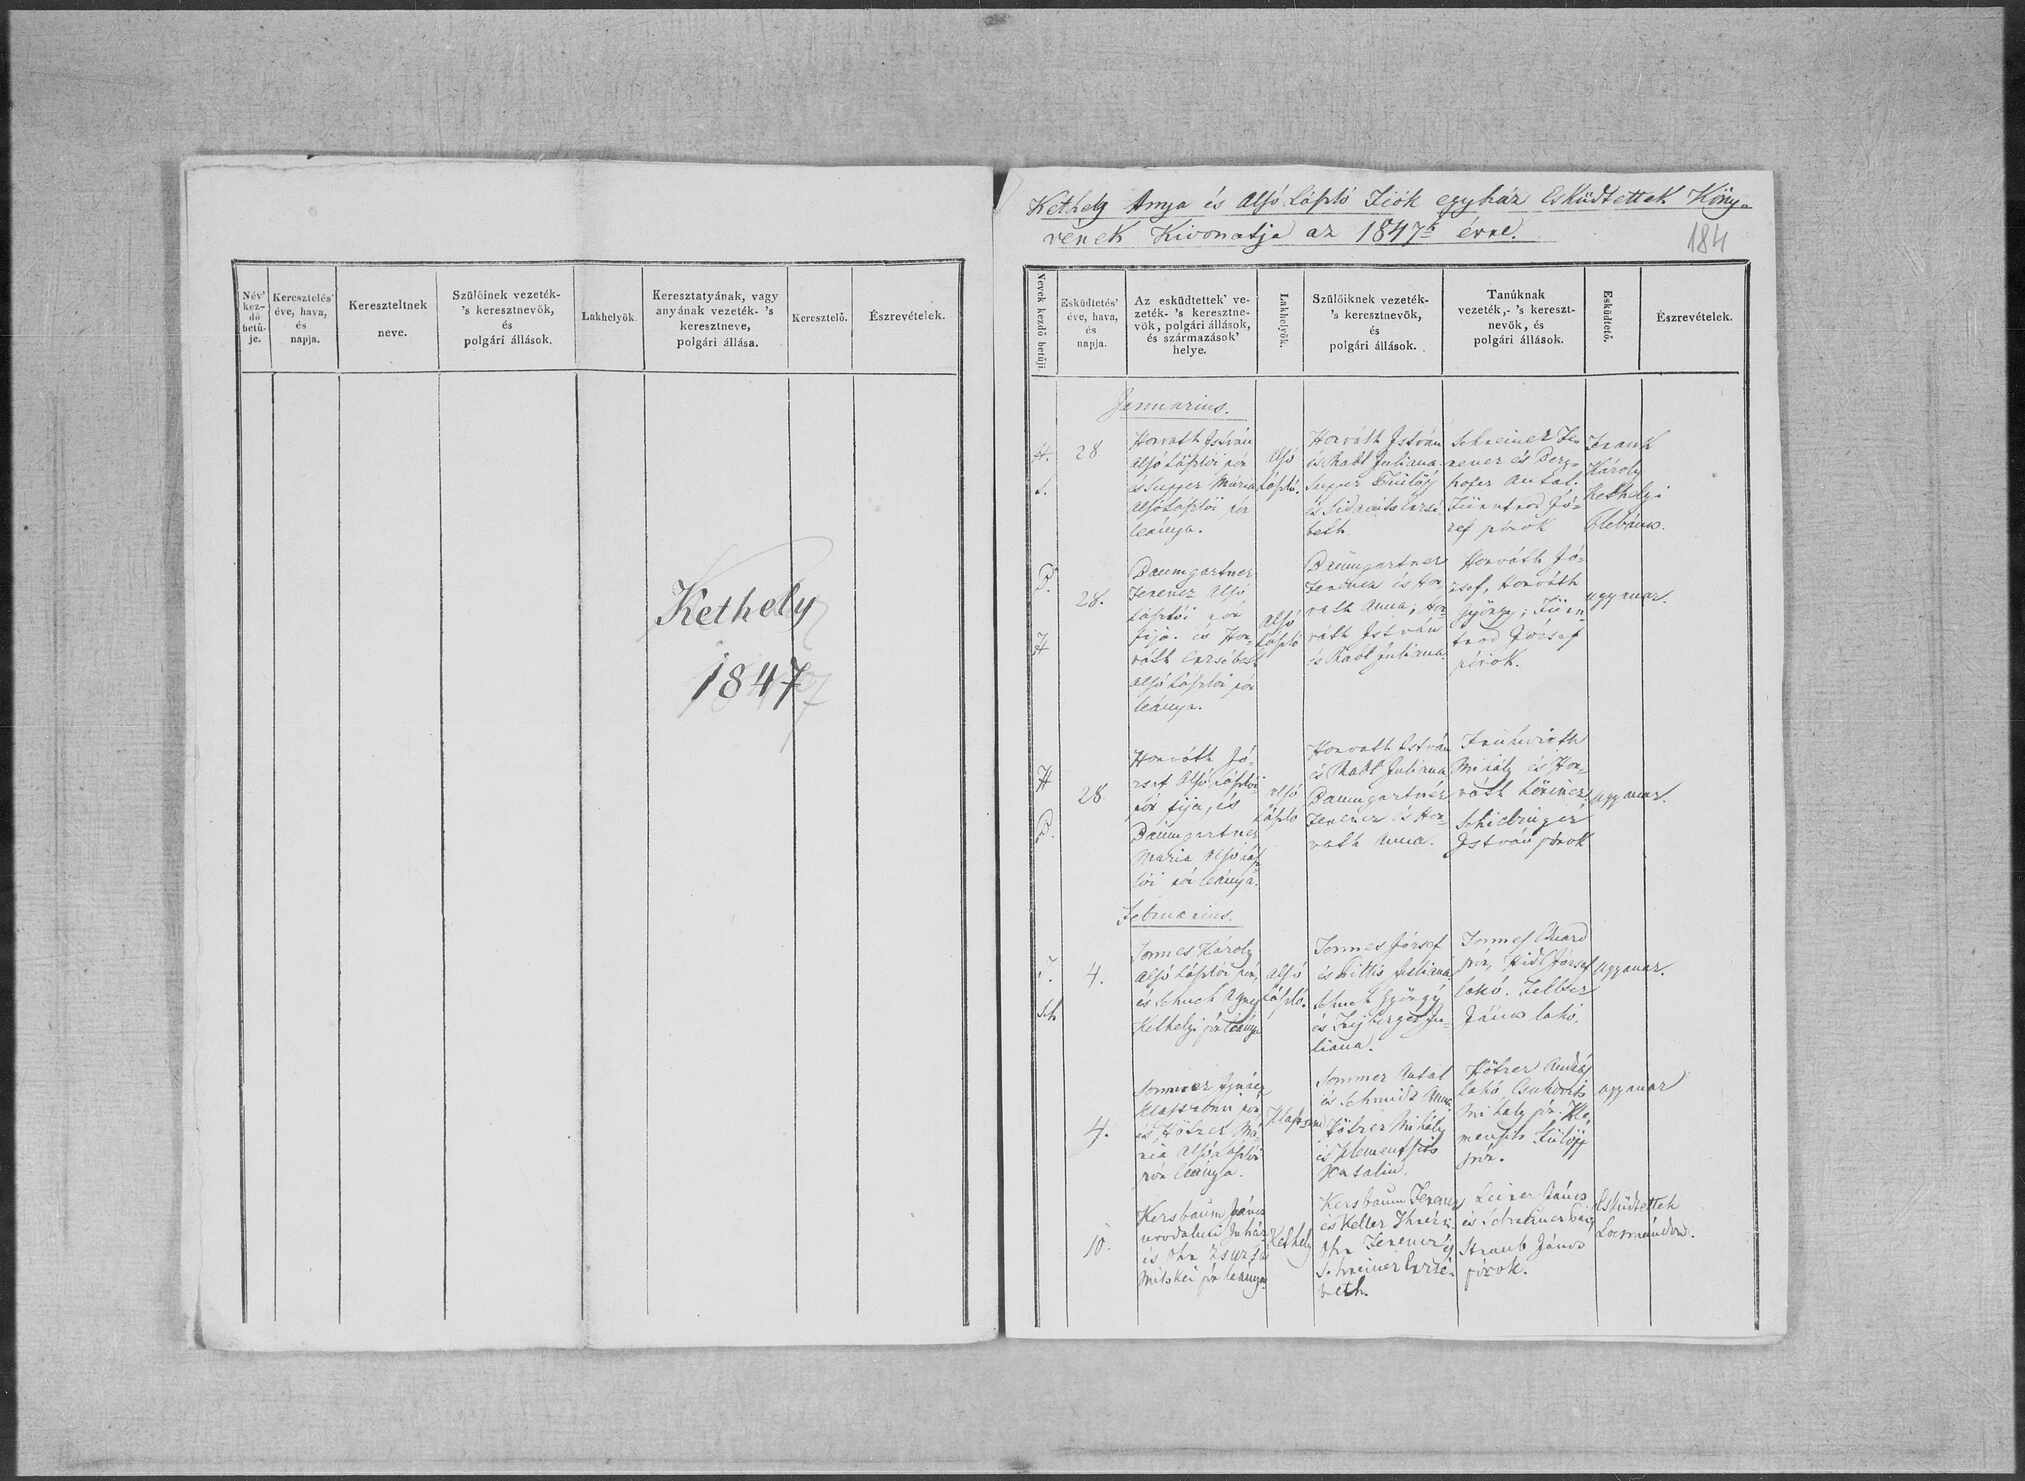 Név' kez- dő betű- je.
Keresztelés' éve, hava, és napja.
Kereszteltnek neve.
Szülőinek vezeték- 's keresztnevök, és polgári állások.
Lakhelyök.
Keresztatyának, vagy anyának vezeték- 's keresztneve, polgári állása.
Keresztelő.
Észrevételek.
Kethely
1847
Kethely Anya és Alsó László Fiók egyház Esküdtettek Köny-
vének Kivonatja az 1847k évre.
184
Nevek kezdő betűji.
Esküdtetés' éve, hava, és napja.
Az esküdtettek' ve- zeték- 's keresztne- vök, polgári állások, és származások' helye.
Lakhelyök.
Szülőiknek vezeték- 's keresztnevök, és polgári állások.
Tanúknak vezeték,- 's kereszt- nevök, és polgári állások.
Esküdtető.
Észrevételek.
Januarius.
H.
S.
28
Horvath István
Alsó Lászlói pór
és Supper Mária
Alsó Lászlói pór
leánya.
Alsó
László.
Horváth István
és Rabl Juliana.
Supper Fülöp
beth
Schreiner Fe
rencz és Berg-
hofer Antal.
József pórok
Frank
Károly
Kethelyi
Plebánus.
B.
H
28.
Baumgartner
Ferencz Alsó
Lászlói pór
fija. és Hor-
váth Ersébeth
Alsó Lászlói pór
leánya.
Alsó
László
Baumgartner
Ferencz és Hor
vath Anna, Hor-
váth István
és Rabl Juliana.
Horváth Jó-
zsef, Horváth
György,
József
pórok.
ugyanaz.
H
B.
28
Horváth Jó-
zsef Alsó Lászlói
pór fija, és
Baumgartner
Maria Alsó Lász
lói pór leánya.
Alsó
Lászlo
Horvath István
és Rabl Juliana
Baumgartner
Ferencz és Hor-
vath Anna.
Fruhwirth
Mihály és Hor-
váth Lőrincz
Schiebinger
István pórok
ugyanaz.
Februarius.
Sch
4.
Károly
Alsó Lászlói pór,
és Schuch Agnes
Kethelyi pór leánya
Alsó
László.
József
és Juliana.
Schuch György
és Ju-
liana.
pór, József
lakó.
János lakó.
ugyanaz.
4.
Sommer Ignácz
pór
és Hötzer Má
ria Alsó Lászlói
pór leánya.
Sommer Antal
és Schmidt Anna
Hötzer Mihály
és
Katalin.
Hötzer András
lakó
Mihaly pór. Kle-
mensits Fülöp
pór.
ugyanaz
10.
Kersbaum János
Juhász
és Ohr Zsuzsa
pór leánya.
Kethely
Kersbaum Ferencz
és Keller
Ohr Ferencz és
Schreiner Ersé-
beth.
János
és
Straub János
pórok.
Esküdtettek
Locsmándon.